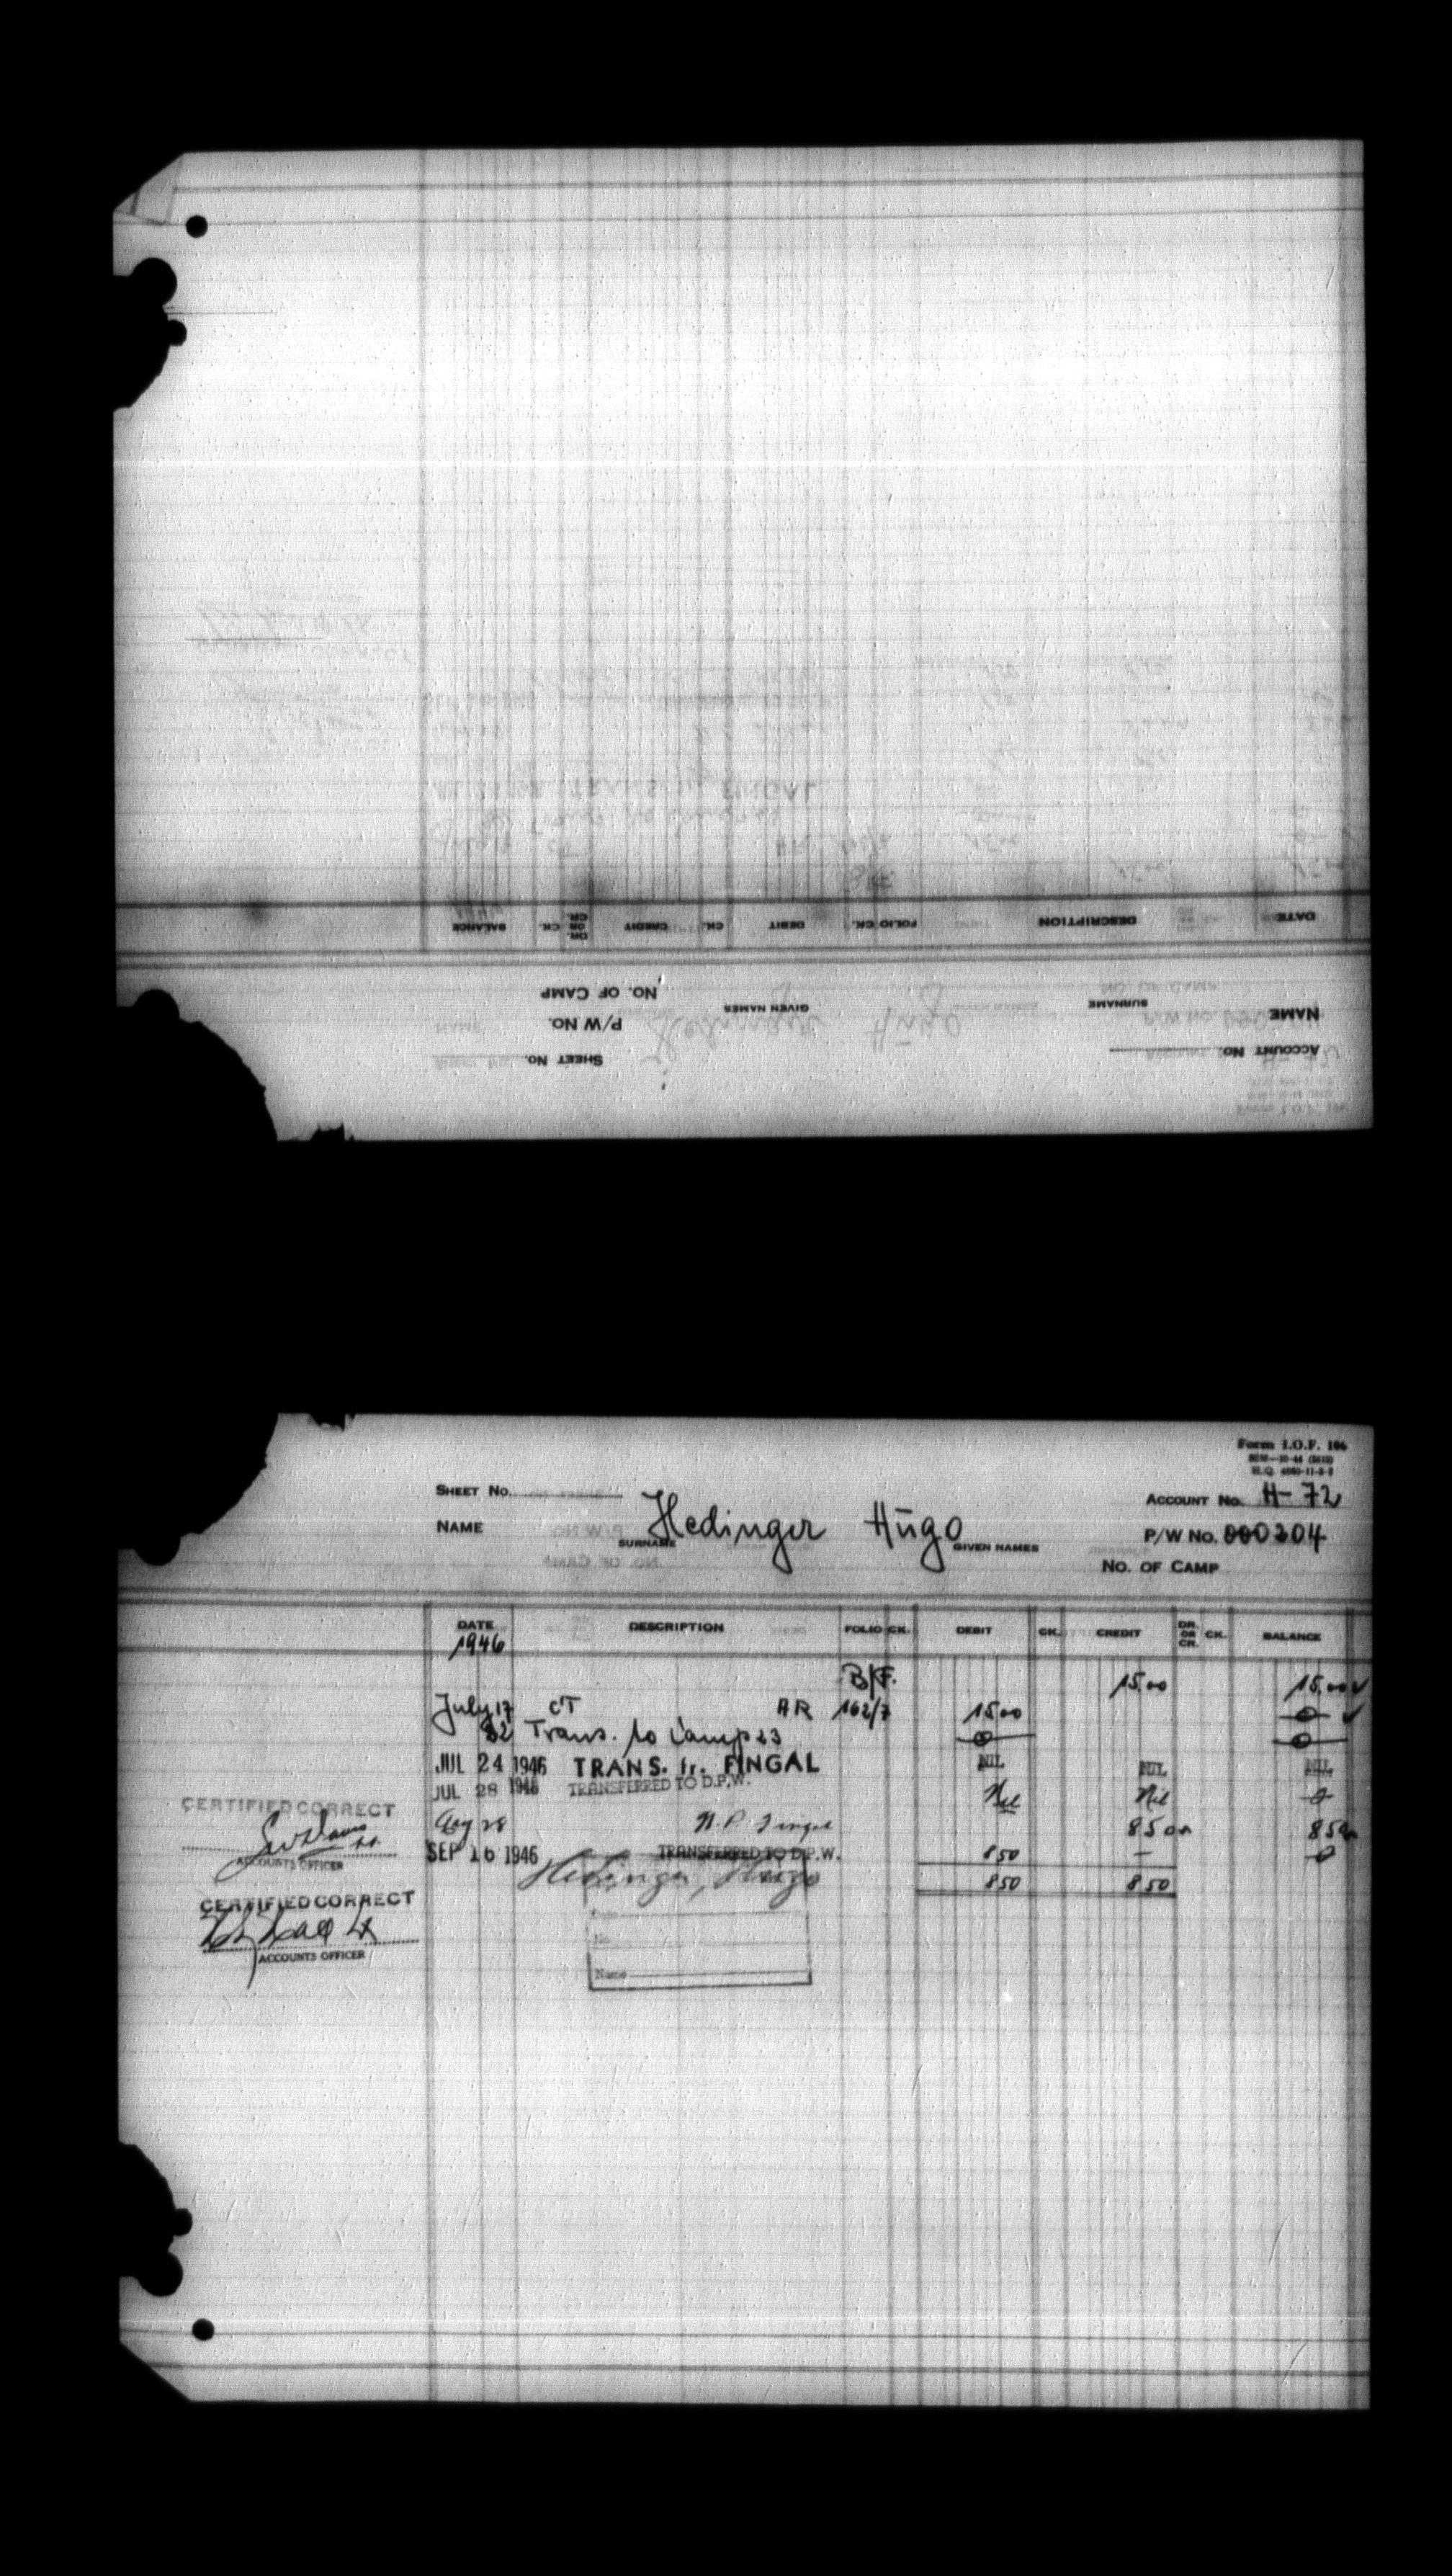 DATE DESCRIPTION FOLIO CK. DEBIT CK. CREDIT DR. OR CR. CK. BALANCE
NAME SURNAME GIVEN NAMES NO. OF CAMP
P/W NO.
ACCOUNT NO. SHEET NO.
Form I.O.F. 106
SHEET NO. ACCOUNT NO. H-72
NAME Hedinger Hugo P/W NO. 000204
SURNAME GIVEN NAMES
NO. OF CAMP
DATE DESCRIPTION FOLIO CK. DEBIT CK. CREDIT DR. OR CR. CK. BALANCE
1946
B/F. 15.00 15.00 ✓
July 17 CT AR 162/7 15.00 0 ✓
22 Trans. to Camp 23 0 0
JUL 24 1946 TRANS. fr. FINGAL NIL NIL NIL
JUL 28 1946 TRANSFERRED TO D.P.W. Nil Nil 0
CERTIFIED CORRECT
Aug 28 N.P. Fingal 850 850
ACCOUNTS OFFICER
SEP 16 1946 TRANSFERRED TO D.P.W. 850 — 0
Hedinger, Hugo 850 850
CERTIFIED CORRECT
ACCOUNTS OFFICER
Date
No.
Name